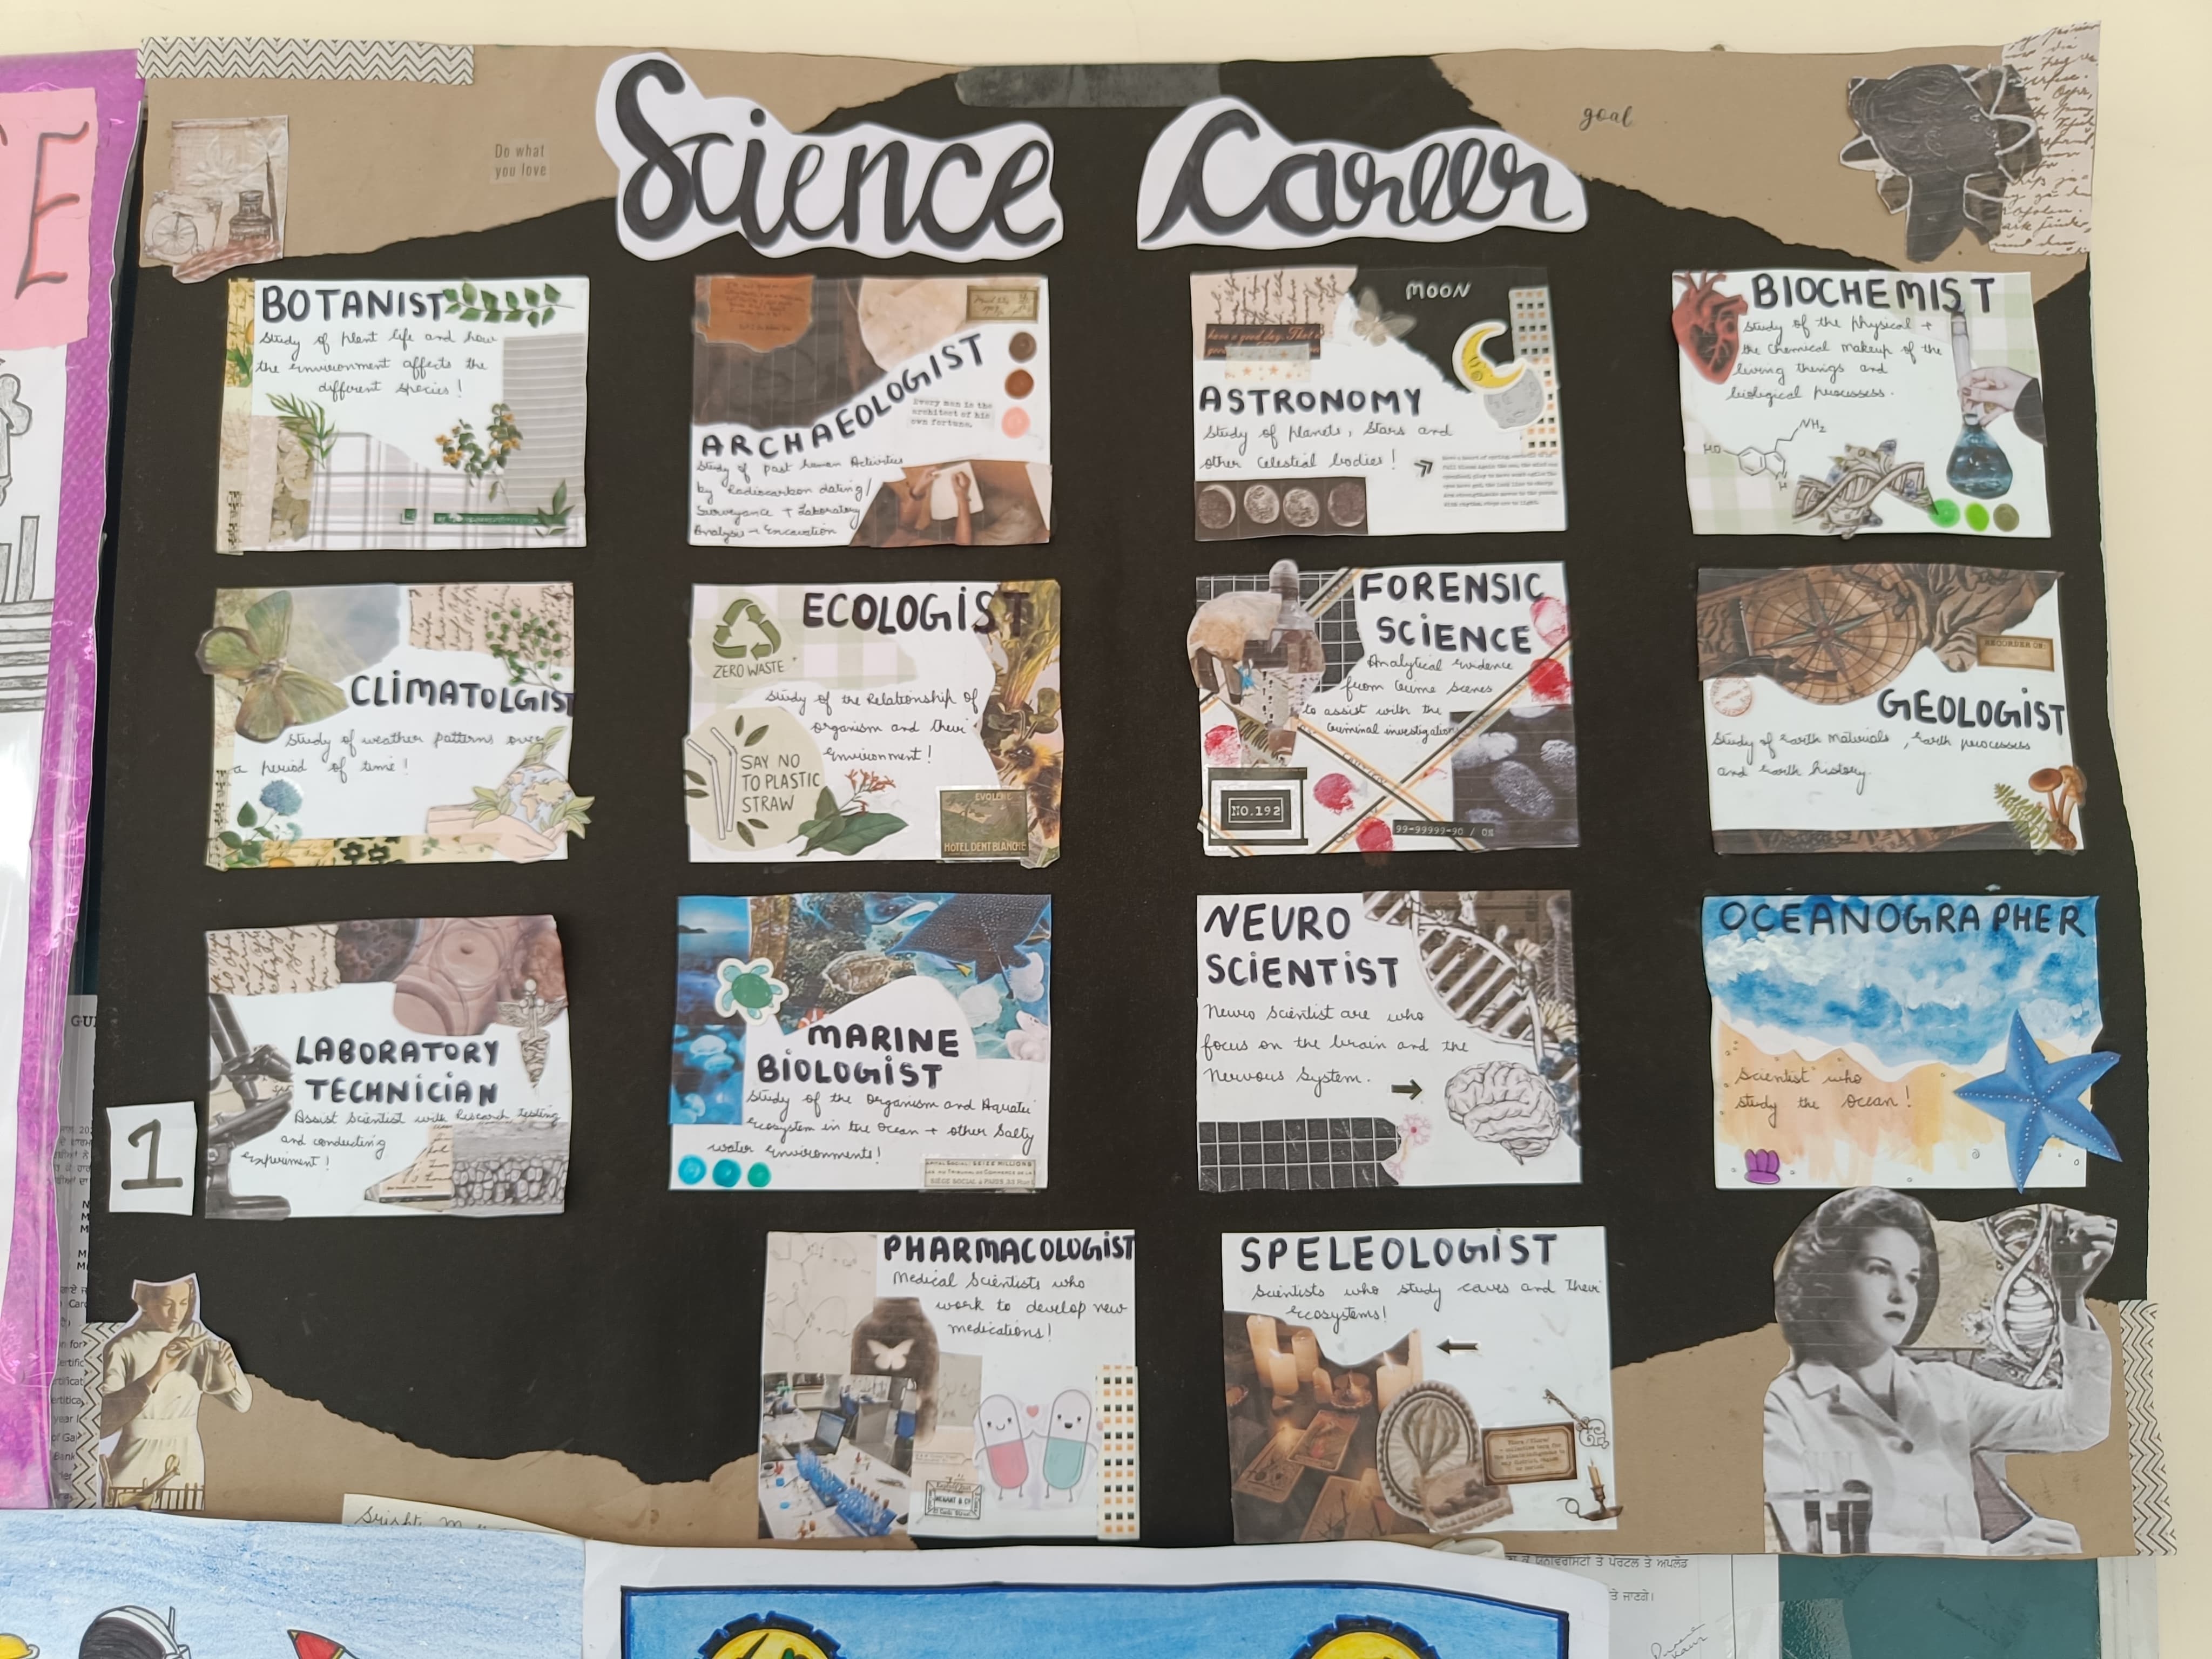 Science Career
Do what
you love
goal
BOTANIST
Study of plant life and how
the environment affects the
different species!
ARCHAEOLOGIST
Every man is the
architect of his
own fortune.
Study of past human Activities
by Radiocarbon dating/
Surveyance + Laboratory
Analysis → Excavation
MOON
have a good day.
ASTRONOMY
Study of planets, Stars and
other Celestial bodies!
BIOCHEMIST
Study of the physical +
the Chemical Makeup of the
living things and
biological processess.
HO
NH2
N
H
CLIMATOLGIST
Study of weather patterns over
a period of time!
ECOLOGIST
ZERO WASTE
Study of the Relationship of
organism and their
Environment!
SAY NO
TO PLASTIC
STRAW
EVOLENE
HOTEL DENT BLANCHE
FORENSIC
SCIENCE
Analytical Evidence
from Crime Scenes
to assist with the
Criminal investigation
NO.192
99-99999-90 / 0%
RECORDER OF
GEOLOGIST
Study of Earth Materials, Earth processess
and Earth history.
LABORATORY
TECHNICIAN
Assist Scientist with Research testing
and conducting
Experiment!
MARINE
BIOLOGIST
Study of the Organism and Aquatic
Ecosystem in the Ocean + other Salty
water Environments!
SIEGE SOCIAL A PARIS
NEURO
SCIENTIST
Neuro Scientist are who
focus on the brain and the
Nervous System.
OCEANOGRAPHER
Scientist who
study the Ocean!
1
PHARMACOLOGIST
Medical Scientists who
work to develop new
medications!
SPELEOLOGIST
Scientists who study caves and their
Ecosystems!
E
GUI
ਤੇ ਜਾਣਗੇ।